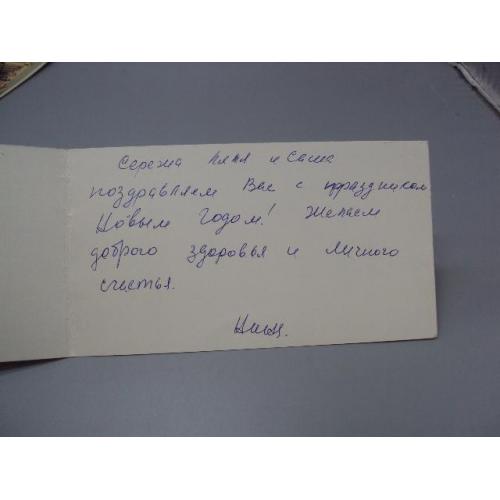 Сережа Ляля и Саша
поздравляем Вас с праздником
Новым Годом! Желаем
доброго здоровья и личного
счастья.